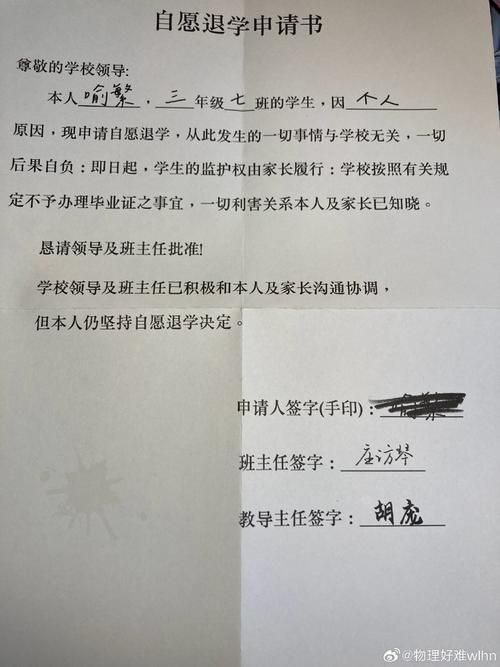 自愿退学申请书
尊敬的学校领导:
本人喻繁，三年级七班的学生，因个人
原因，现申请自愿退学，从此发生的一切事情与学校无关，一切
后果自负：即日起，学生的监护权由家长履行：学校按照有关规
定不予办理毕业证之事宜，一切利害关系本人及家长已知晓。
恳请领导及班主任批准!
学校领导及班主任已积极和本人及家长沟通协调，
但本人仍坚持自愿退学决定。
申请人签字(手印)：喻繁
班主任签字：庄访琴
教导主任签字：胡庞
@物理好难wlhn